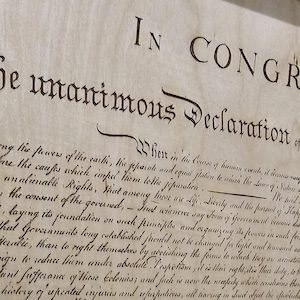 IN CONGR
he unanimous Declaration of
When in the Course of human events, it
ong the powers of the earth, the separate and equal station to which the Laws of
re the causes which impel them to the separation. We
unalienable Rights, that among these are Life, Liberty and the pursuit of
the consent of the governed, — That whenever any Form of Government
laying its foundation on such principles and organizing its powers in such
that Governments long established should not be changed for light and
, than to right themselves by abolishing the forms to which they are
sign to reduce them under absolute Despotism, it is their right, it is their duty,
ient sufferance of these Colonies; and such is now the necessity which constrains
history of repeated injuries and usurpations, all having in